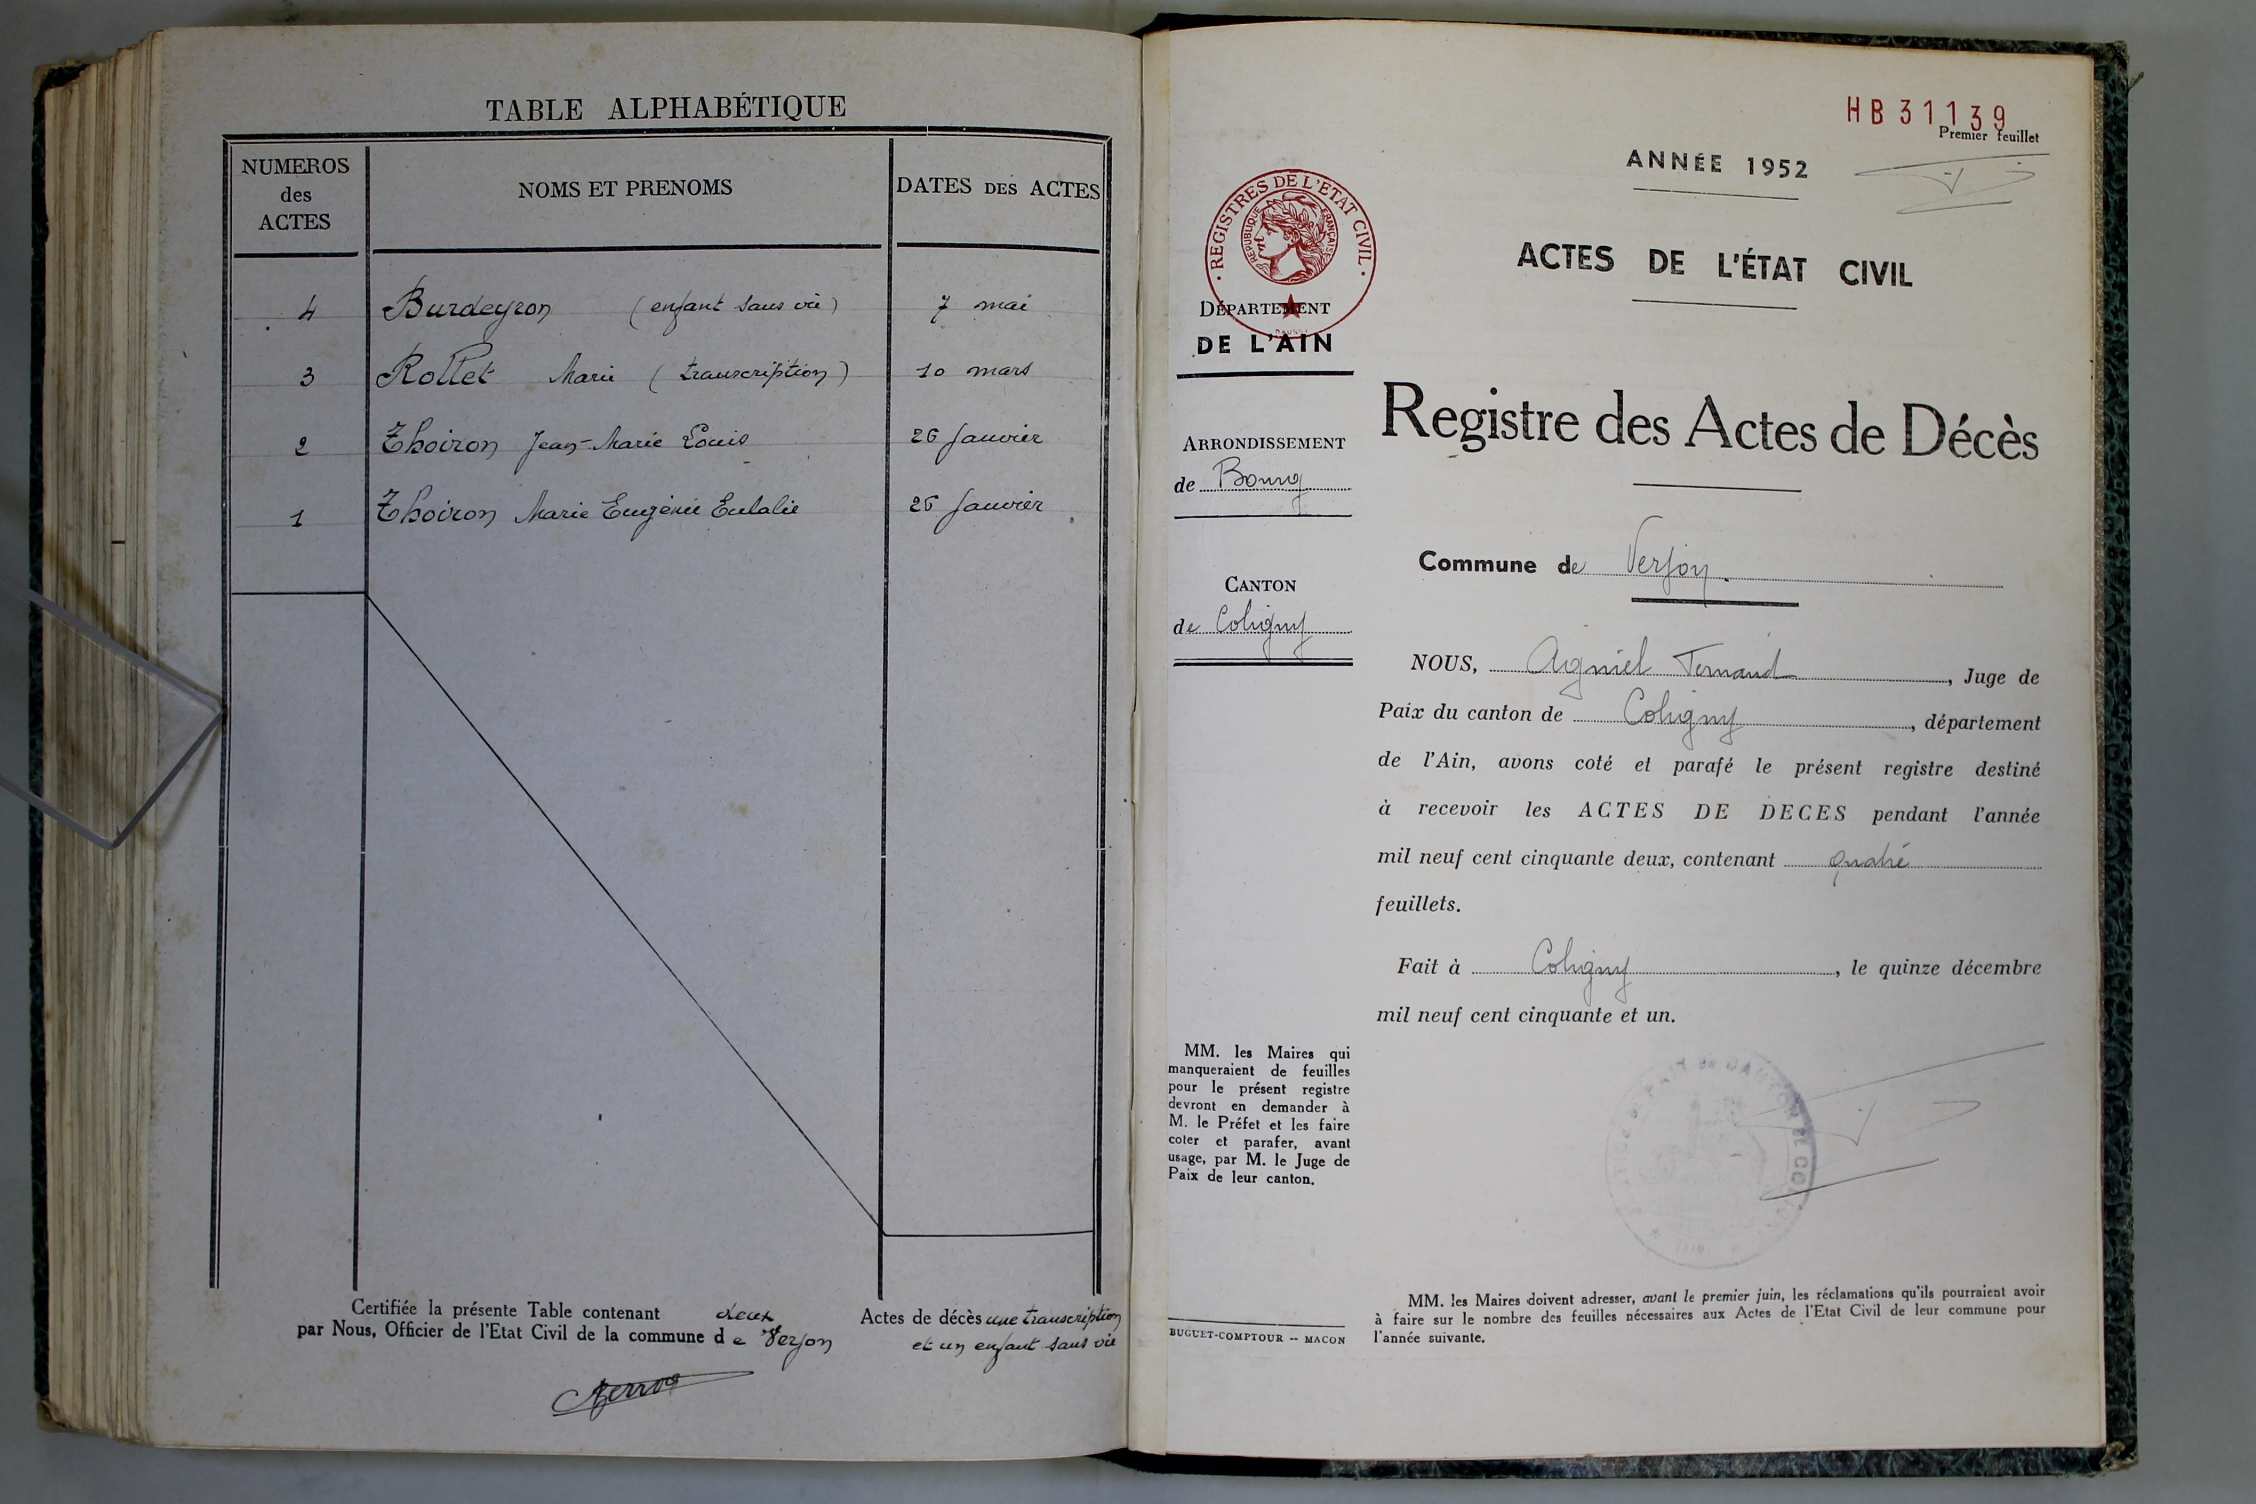 TABLE ALPHABÉTIQUE
NUMEROS
des
ACTES
NOMS ET PRENOMS
DATES DES ACTES
4 Burdeyron (enfant sans vie) 7 mai
3 Rollet Marie (transcription) 10 mars
2 Thoiron Jean-Marie Louis 26 Janvier
1 Thoiron Marie Eugénie Eulalie 25 Janvier
Certifiée la présente Table contenant deux Actes de décès une transcription
par Nous, Officier de l'Etat Civil de la commune de Verjon et un enfant sans vie
HB 31139
Premier feuillet
ANNÉE 1952
ACTES DE L'ÉTAT CIVIL
· REGISTRES DE L'ETAT CIVIL ·
REPUBLIQUE FRANÇAISE
DÉPARTEMENT
DE L'AIN
Registre des Actes de Décès
ARRONDISSEMENT
de Bourg
Commune de Verjon.
CANTON
de Coligny
NOUS, Aigniel Fernand, Juge de
Paix du canton de Coligny, département
de l'Ain, avons coté et parafé le présent registre destiné
à recevoir les ACTES DE DECES pendant l'année
mil neuf cent cinquante deux, contenant quatre
feuillets.
Fait à Coligny, le quinze décembre
mil neuf cent cinquante et un.
MM. les Maires qui
manqueraient de feuilles
pour le présent registre
devront en demander à
M. le Préfet et les faire
coter et parafer, avant
usage, par M. le Juge de
Paix de leur canton.
MM. les Maires doivent adresser, avant le premier juin, les réclamations qu'ils pourraient avoir
à faire sur le nombre des feuilles nécessaires aux Actes de l'Etat Civil de leur commune pour
l'année suivante.
BUGUET-COMPTOUR -- MACON